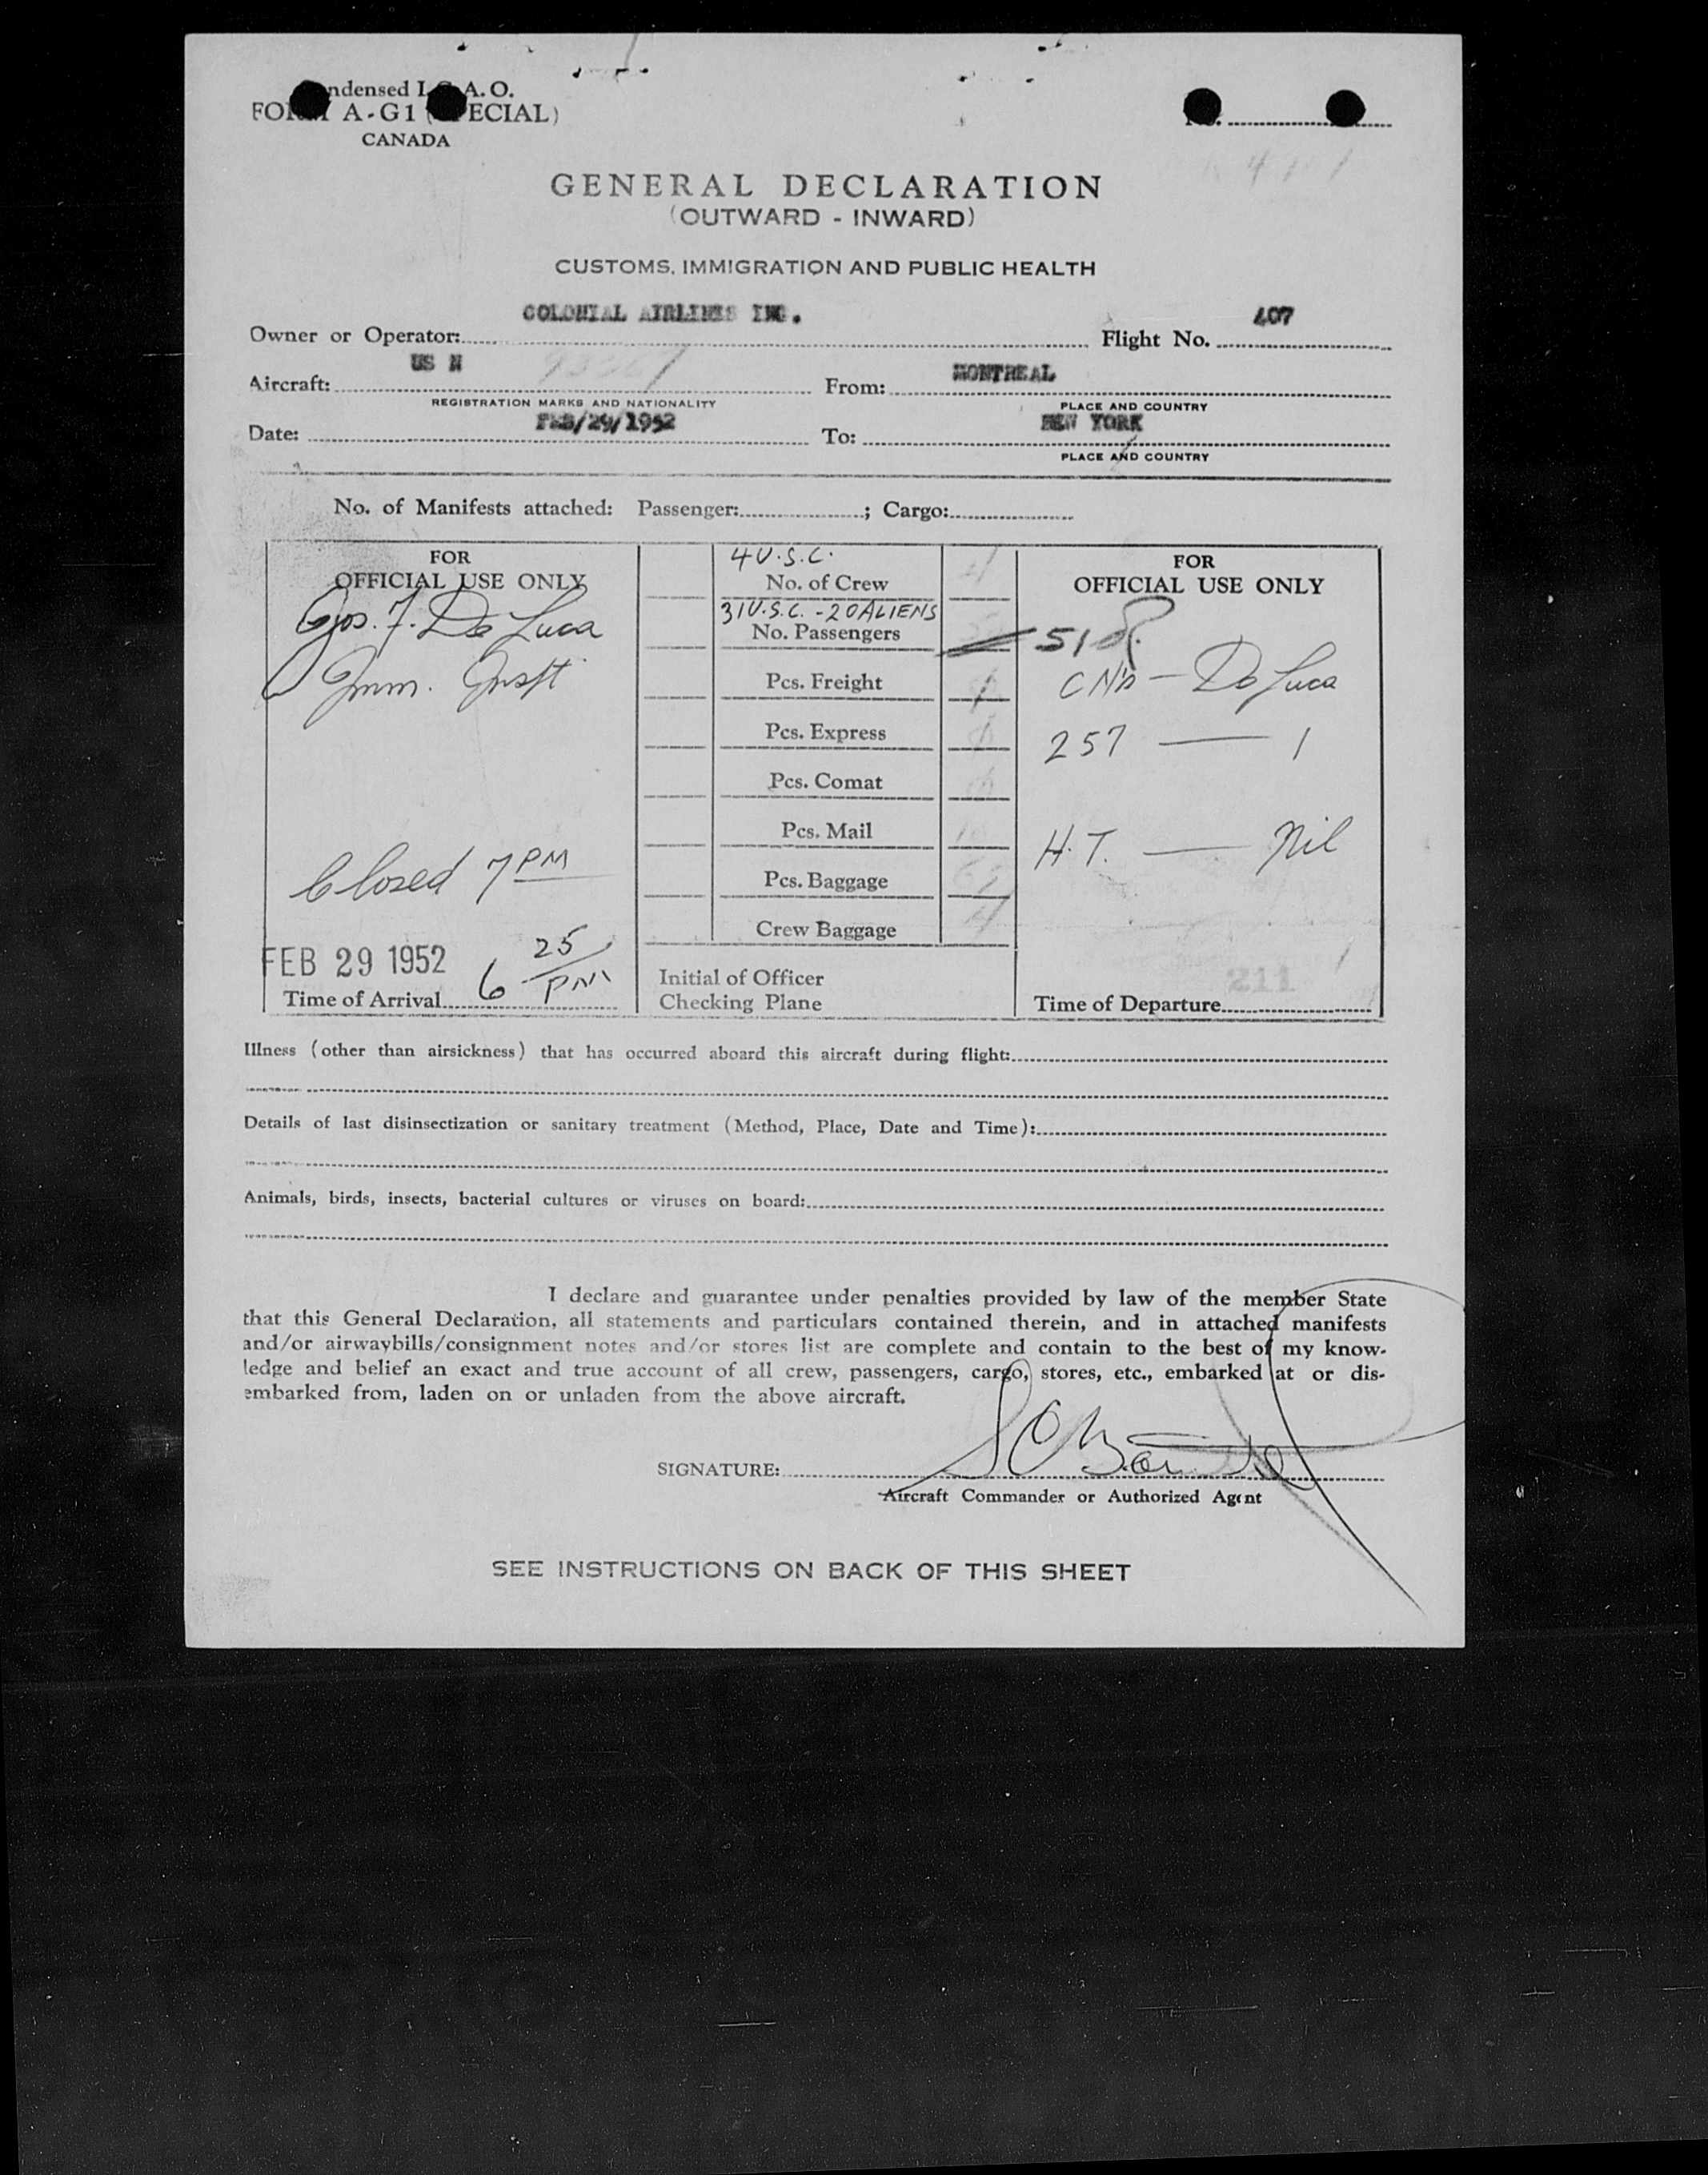 ndensed I. A. O.
FORM A-G1 ( ECIAL)
CANADA
GENERAL DECLARATION
(OUTWARD - INWARD)
CUSTOMS, IMMIGRATION AND PUBLIC HEALTH
COLONIAL AIRLINES INC. 407
Owner or Operator: Flight No.
US N MONTREAL
Aircraft: From:
REGISTRATION MARKS AND NATIONALITY PLACE AND COUNTRY
FEB/29/1952 NEW YORK
Date: To:
PLACE AND COUNTRY
No. of Manifests attached: Passenger: ; Cargo:
FOR
OFFICIAL USE ONLY
Jos. F. De Luca
Imm. Inspt
Closed 7 PM
FEB 29 1952 6 25 PM
Time of Arrival
4 U.S.C. 4
No. of Crew
31 U.S.C. - 20 ALIENS
No. Passengers
Pcs. Freight 1
Pcs. Express
Pcs. Comat
Pcs. Mail
Pcs. Baggage
Crew Baggage 4
Initial of Officer
Checking Plane
FOR
OFFICIAL USE ONLY
51
De Luca
257 — 1
H.T. — Nil
211
Time of Departure
Illness (other than airsickness) that has occurred aboard this aircraft during flight:
Details of last disinsectization or sanitary treatment (Method, Place, Date and Time):
Animals, birds, insects, bacterial cultures or viruses on board:
I declare and guarantee under penalties provided by law of the member State
that this General Declaration, all statements and particulars contained therein, and in attached manifests
and/or airwaybills/consignment notes and/or stores list are complete and contain to the best of my know-
ledge and belief an exact and true account of all crew, passengers, cargo, stores, etc., embarked at or dis-
embarked from, laden on or unladen from the above aircraft.
SIGNATURE:
Aircraft Commander or Authorized Agent
SEE INSTRUCTIONS ON BACK OF THIS SHEET